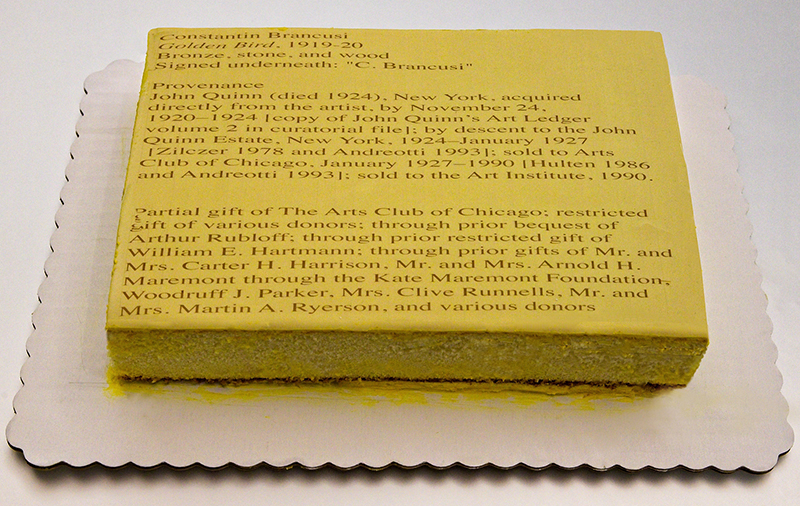 Constantin Brancusi
Golden Bird, 1919-20
Bronze, stone, and wood
Signed underneath: "C. Brancusi"
Provenance
John Quinn (died 1924), New York, acquired
directly from the artist, by November 24,
1920–1924 [copy of John Quinn's Art Ledger
volume 2 in curatorial file]; by descent to the John
Quinn Estate, New York, 1924–January 1927
[Zilczer 1978 and Andreotti 1993]; sold to Arts
Club of Chicago, January 1927–1990 [Hulten 1986
and Andreotti 1993]; sold to the Art Institute, 1990.
Partial gift of The Arts Club of Chicago; restricted
gift of various donors; through prior bequest of
Arthur Rubloff; through prior restricted gift of
William E. Hartmann; through prior gifts of Mr. and
Mrs. Carter H. Harrison, Mr. and Mrs. Arnold H.
Maremont through the Kate Maremont Foundation,
Woodruff J. Parker, Mrs. Clive Runnells, Mr. and
Mrs. Martin A. Ryerson, and various donors